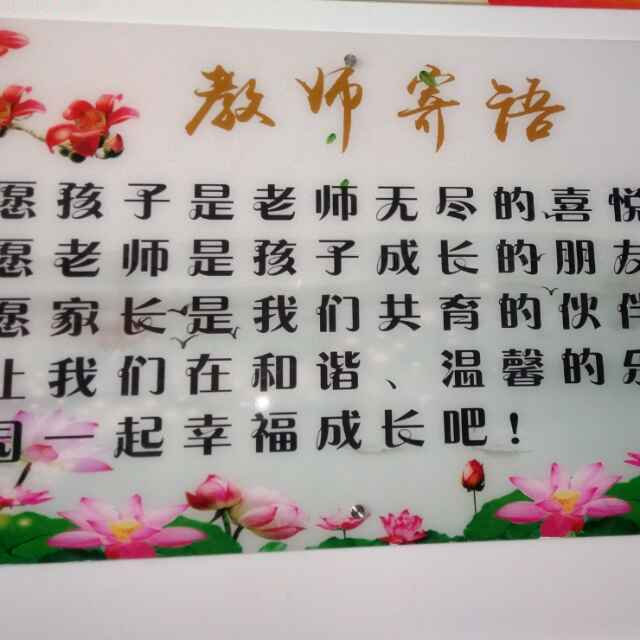 教师寄语
愿孩子是老师无尽的喜悦
愿老师是孩子成长的朋友
愿家长是我们共育的伙伴
让我们在和谐、温馨的乐
园一起幸福成长吧！